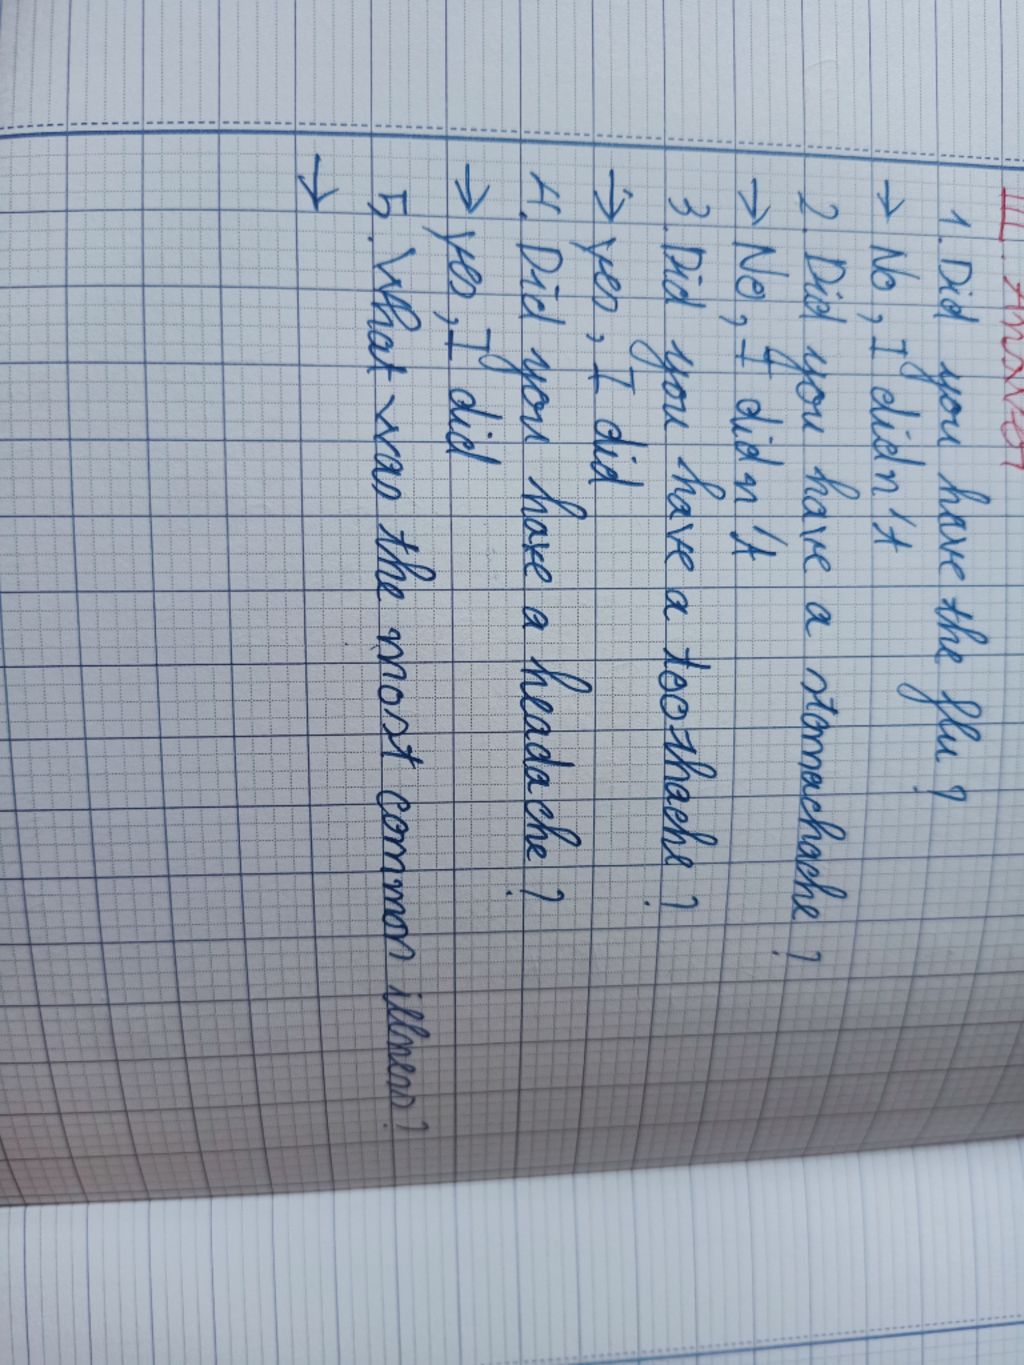 III. Answer
1. Did you have the flu?
→ No, I didn't
2. Did you have a stomachache?
→ No, I didn't
3. Did you have a toothache?
→ Yes, I did
4. Did you have a headache?
→ Yes, I did
5. What was the most common illness?
→